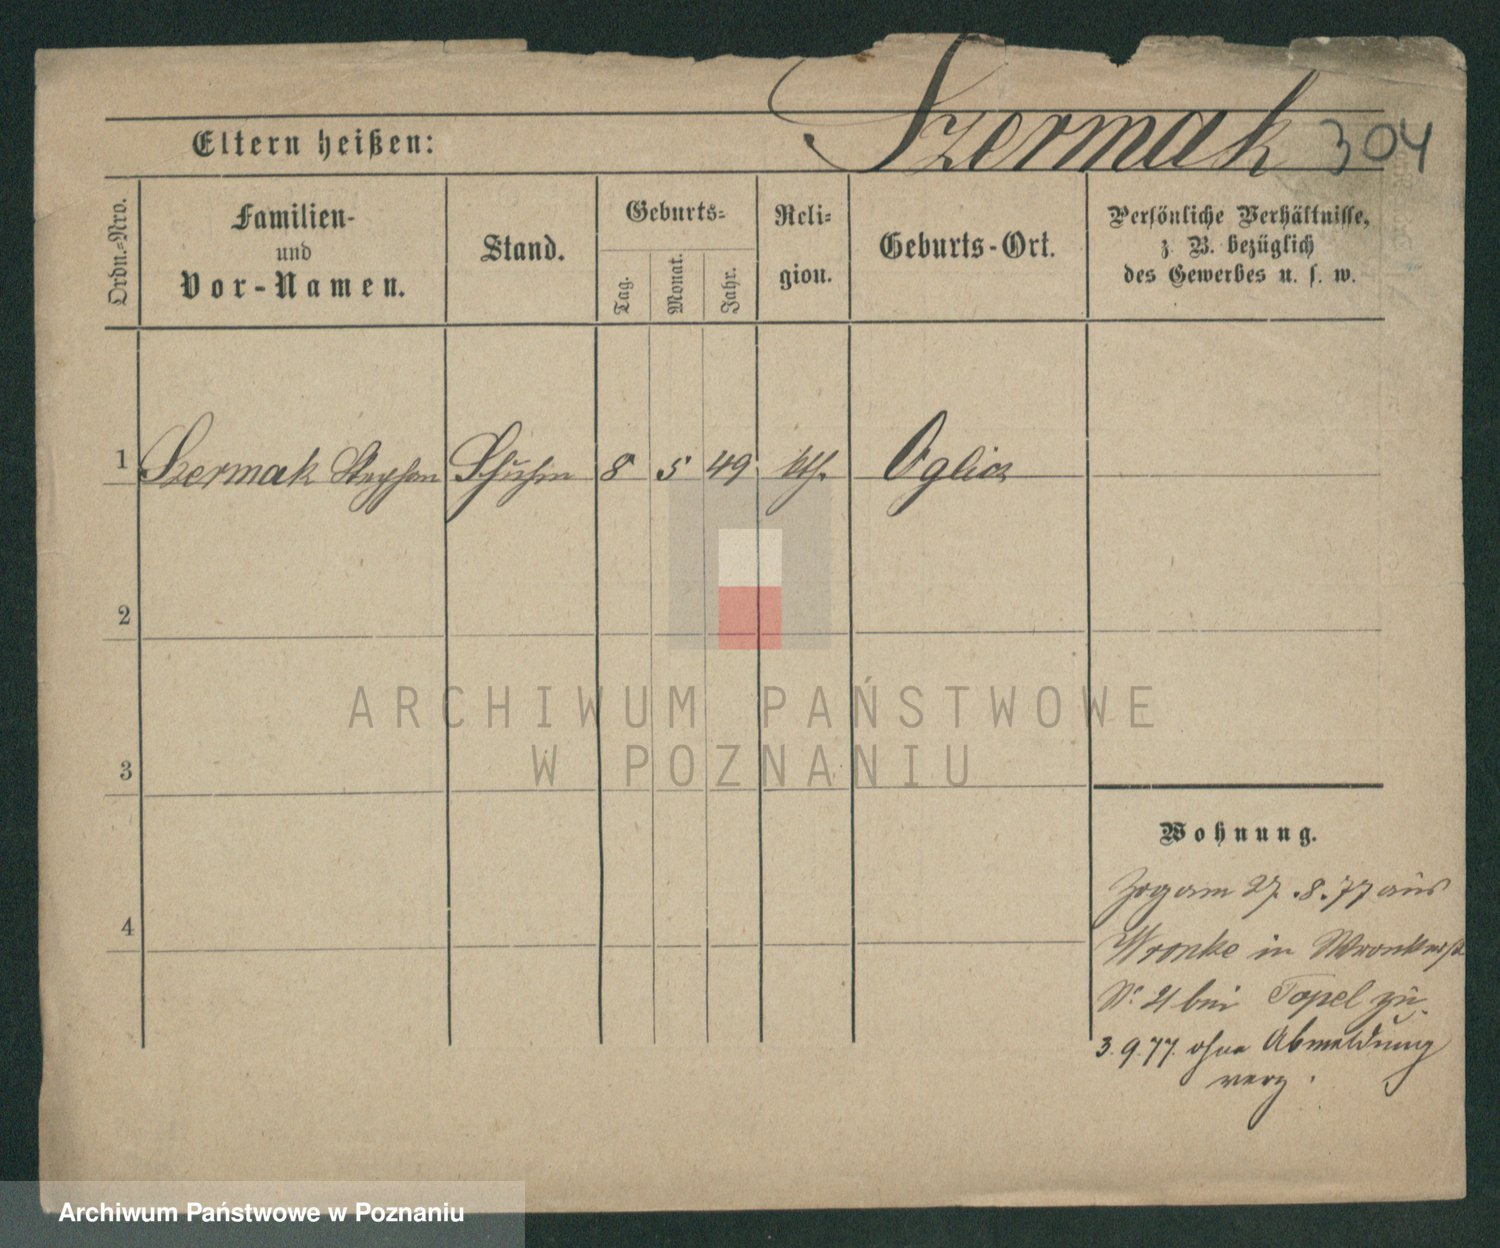 Szermak 304
Eltern heißen:
Ordn.-Nro.
Familien-
und
Vor-Namen.
Stand.
Geburts-
Tag.
Monat.
Jahr.
Reli-
gion.
Geburts-Ort.
Persönliche Verhältnisse,
z. B. bezüglich
des Gewerbes u. s. w.
1 Szermak Stephan Schuhm 8 5 49 kth.
2
3
4
Wohnung.
Zog am 27.8.77 aus
Wronke in Wronkerst
No 21 bei Topel zu.
3.9.77. ohne Abmeldung
verz.
ARCHIWUM PAŃSTWOWE
W POZNANIU
Archiwum Państwowe w Poznaniu